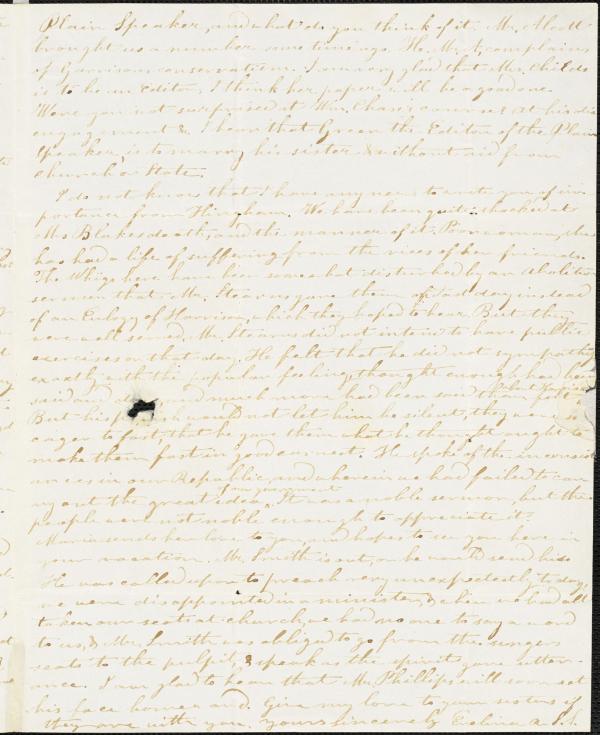 Plain Speaker, and what do you think of it. Mr. Alcott
brought us a number some time ago. He Mr. A. complains
of Garrison's conservatism. I am very glad that Mrs. Childs
is to be an Editor, I think her paper will be a good one.
Were you not surprised at Wm. Chase's course & at his dis
engagement &. I hear that Green the Editor of the Plain
Speaker, is to marry his sister & without aid from
Church or State.
I do not know that I have any news to write you of im
portance from Hingham. We have been quite shocked at
Ms Blake's death, and the manner of it. Poor woman, she
has had a life of suffering from the vices of her friends.
The Whigs here have been somewhat disturbed by an Abolition
sermon that Mr. Stearns gave them on Fast day, instead
of an Eulogy of Harrison, which they hoped to hear. But they
were well served, Mr. Stearns did not intend to have public
exercises on that day. He felt that he did not sympathy
exactly with the popular feeling, thought enough had been
said and much more had been said than felt about Harrison
But his would not let him be silent, they were
eager to fast, that he gave them what he thought ought to
make them fast in good earnest. He spoke of the inconsist
ancies in our Republic, and wherein we had failed to car
ry out the great idea of our government. It was a noble sermon, but the
people were not noble enough to appreciate it.
Maria sends her love to you, and hopes to see you here in
your vacation. Mr. Smith is out, or he would send his.
He was called upon to preach very unexpectedly to day,
we were disappointed in a minister, & when we had all
taken our seats at church, we had no one to say a word
to us, & Mr. Smith was obliged to go from the singers
seats to the pulpit, & speak as the spirit gave utter-
ance. I am glad to hear that Mr. Phillips will soon set
his face homeward. Give my love to your sisters if
they are with you. Yours sincerely